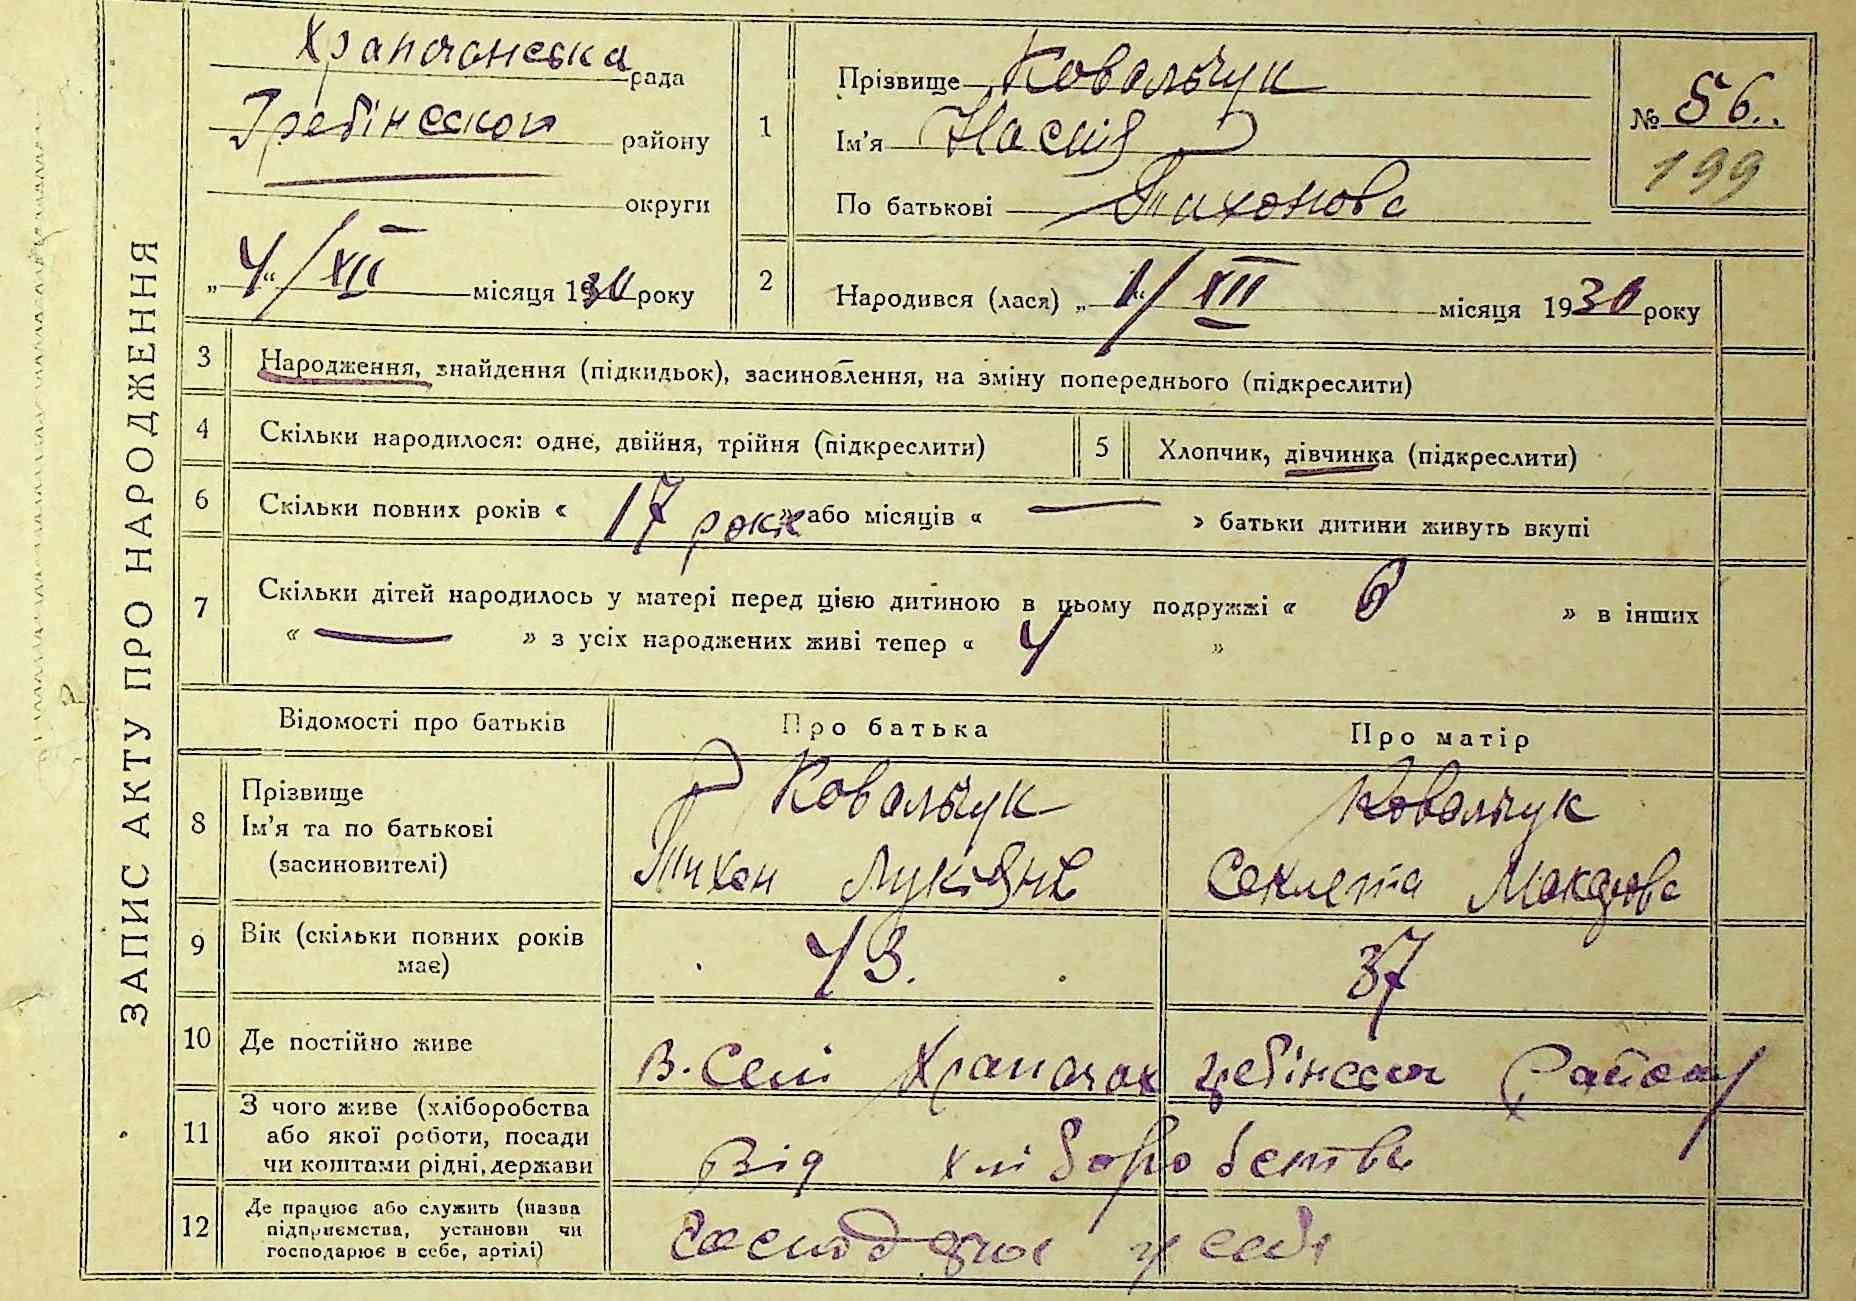 ЗАПИС АКТУ ПРО НАРОДЖЕННЯ
Храпачанська рада
Гребінсської району
округи
„4“/XII місяця 1930 року
1
Прізвище Ковальчук
Ім'я Настя
По батькові Тихонова
№ 56..
199
2
Народився (лася) „1“/XII місяця 1930 року
3
Народження, знайдення (підкидьок), засиновлення, на зміну попереднього (підкреслити)
4
Скільки народилося: одне, двійня, трійня (підкреслити)
5
Хлопчик, дівчинка (підкреслити)
6
Скільки повних років « 17 років » або місяців « — » батьки дитини живуть вкупі
7
Скільки дітей народилось у матері перед цією дитиною в цьому подружжі « 6 » в інших
« — » з усіх народжених живі тепер « 4 »
Відомості про батьків
Про батька
Про матір
8
Прізвище
Ім'я та по батькові
(засиновителі)
Ковальчук
Тихон Лукянів
Ковальчук
Секлета
9
Вік (скільки повних років
має)
43.
37
10
Де постійно живе
В. Селі Храпачах Району
11
З чого живе (хліборобства
або якої роботи, посади
чи коштами рідні, держави
Від хліборобства
12
Де працює або служить (назва
підприємства, установи чи
господарює в себе, артілі)
у себе